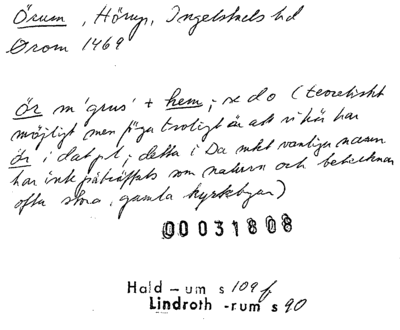 Örum, Hörup, Ingelstads hd
Ørom 1469
ör m 'grus' + hem; se do (teoretiskt
möjligt men föga troligt är att vi här har
ör i dat pl; detta i Da mkt vanliga namn
har ink påträffats som naturn och betecknar
ofta stora, gamla kyrkbyar)
00031808
Hald - um s 109 f
Lindroth -rum s 90